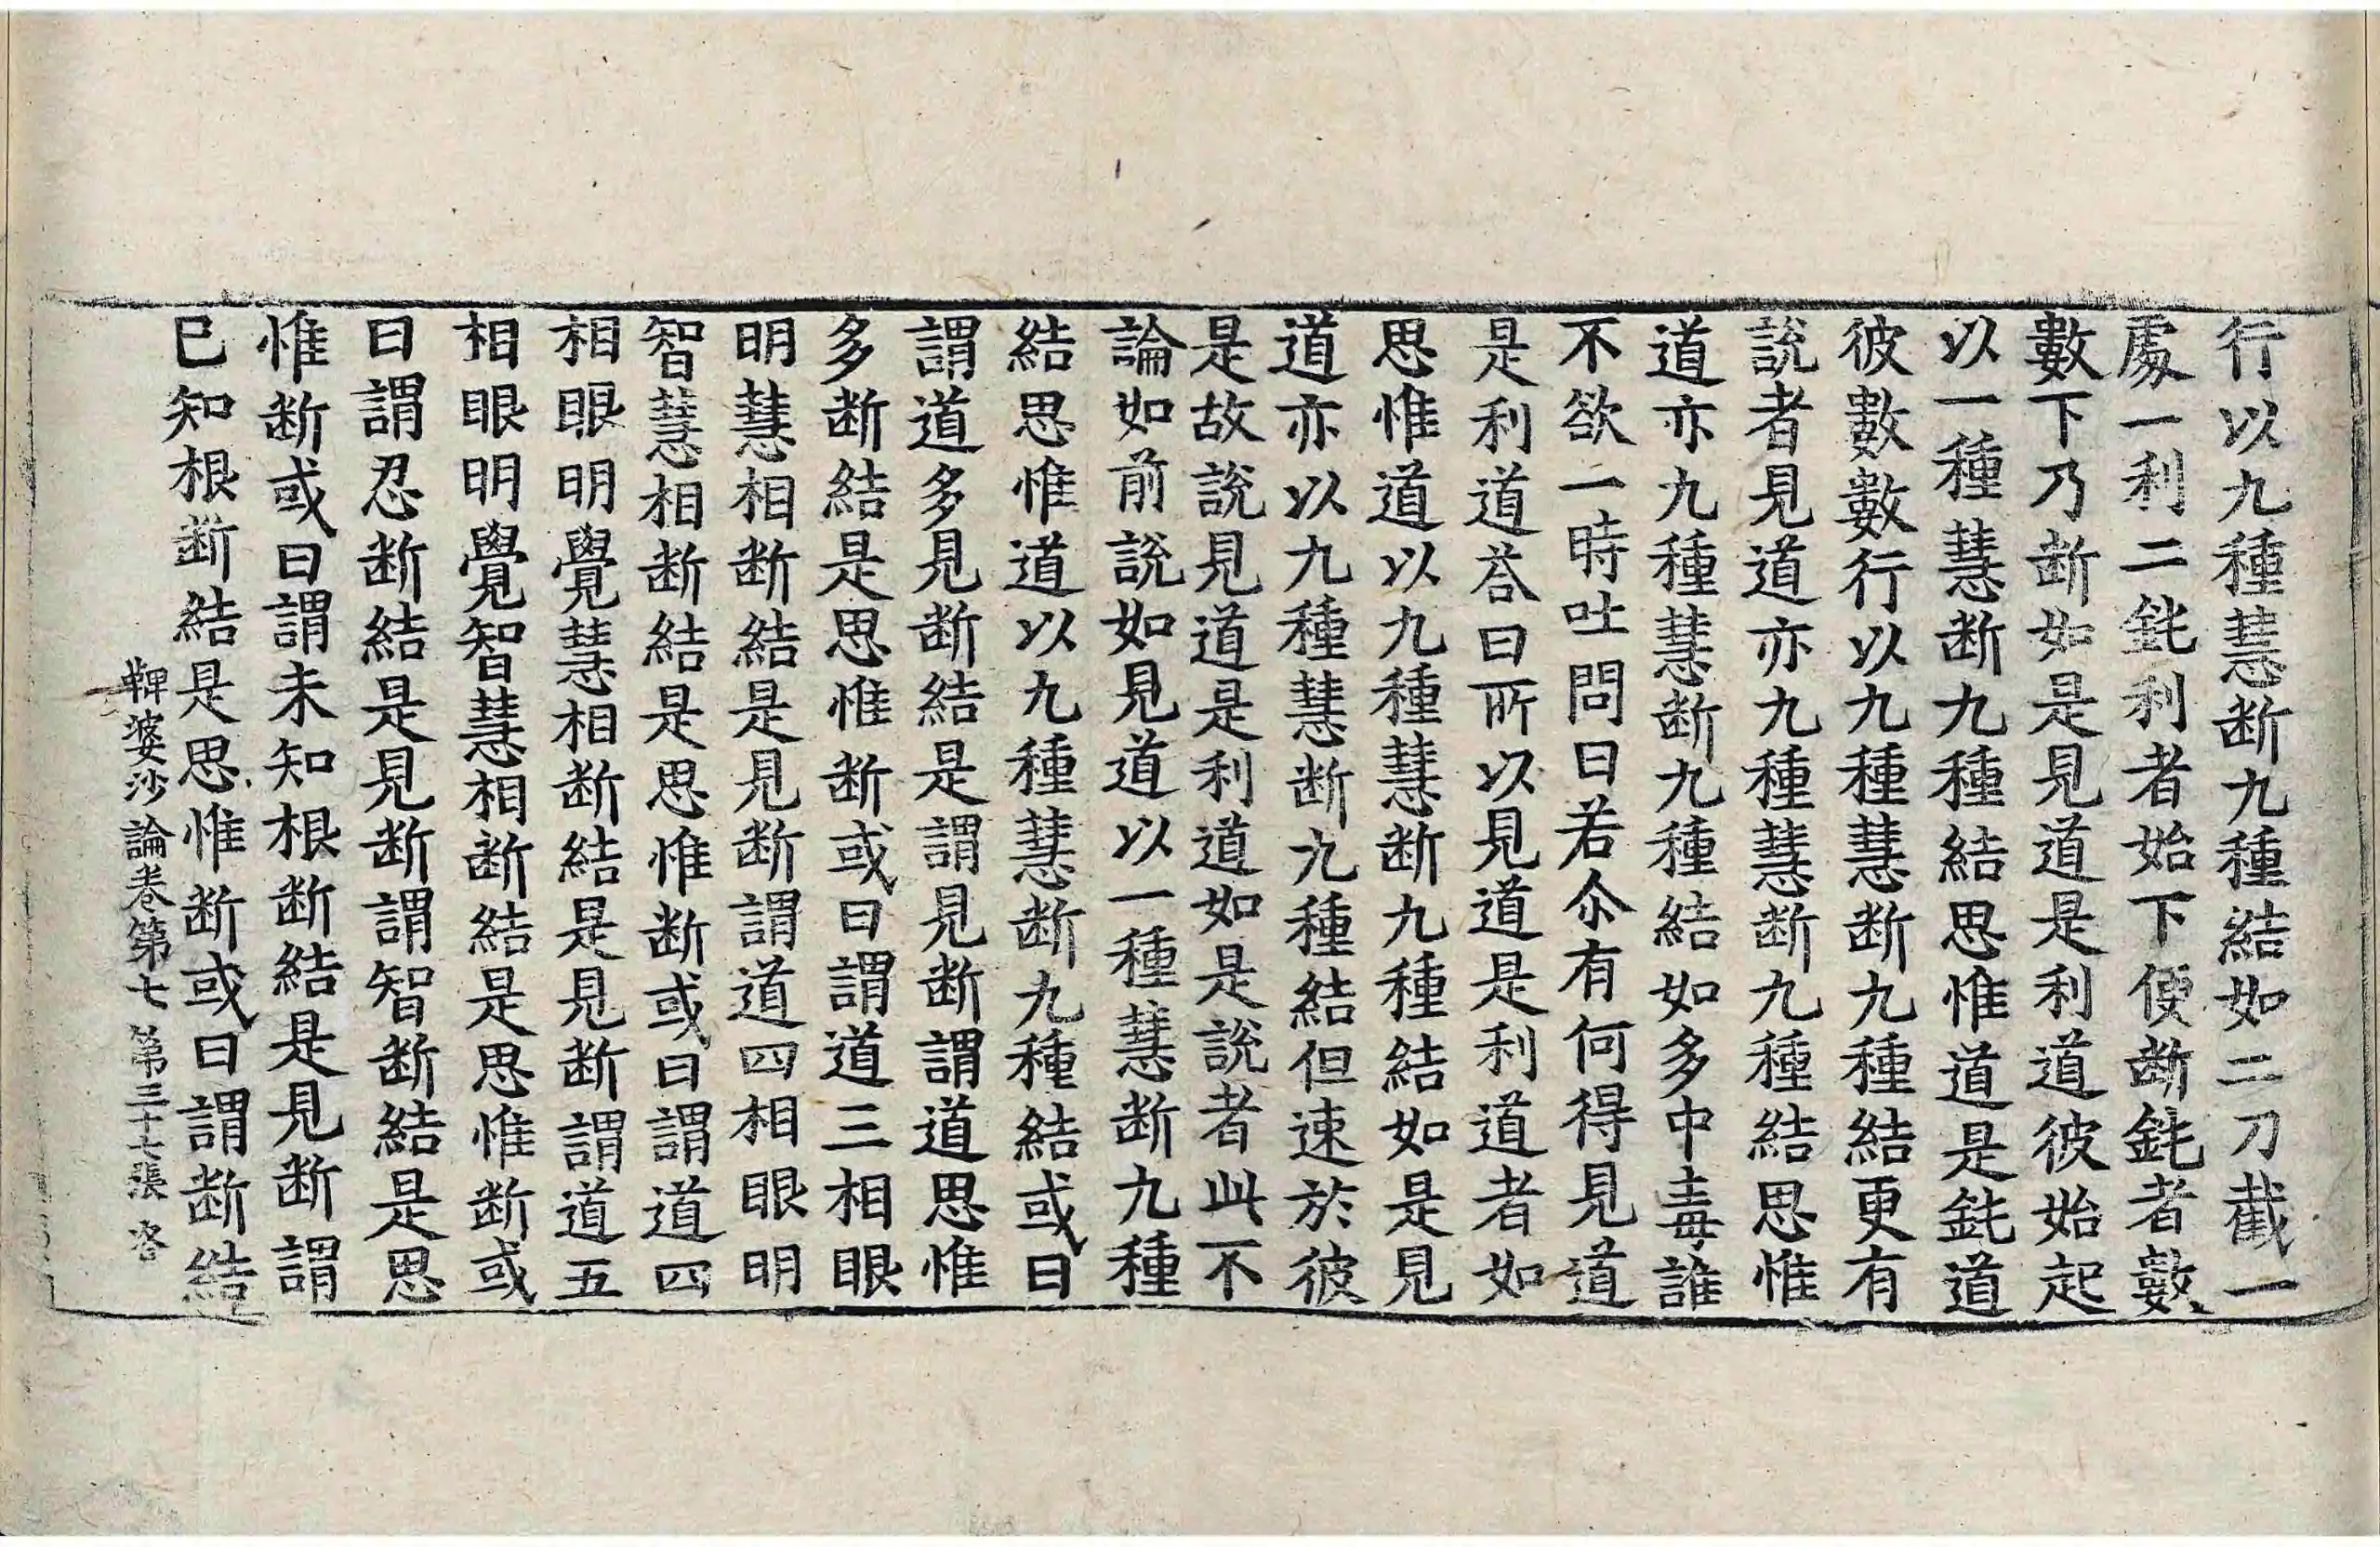 行以九種慧断九種結如二刀截一
處一利二鈍利者始下便断鈍者數
數下乃断如是見道是利道彼始起
以一種慧断九種結思惟道是鈍道
彼數數行以九種慧断九種結更有
說者見道亦九種慧断九種結思惟
道亦九種慧断九種結如多中毒誰
不欲一時吐問曰若尒有何得見道
是利道荅曰所以見道是利道者如
思惟道以九種慧断九種結如是見
道亦以九種慧断九種結但速於彼
是故說見道是利道如是說者此不
論如前說如見道以一種慧断九種
結思惟道以九種慧断九種結或曰
謂道多見断結是謂見断謂道思惟
多断結是思惟断或曰謂道三相眼
明慧相断結是見断謂道四相眼明
智慧相断結是思惟断或曰謂道四
相眼明覺慧相断結是見断謂道五
相眼明覺智慧相断結是思惟断或
曰謂忍断結是見断謂智断結是思
惟断或曰謂未知根断結是見断謂
已知根断結是思惟断或曰謂断結
鞞婆沙論卷第七 第三十七張